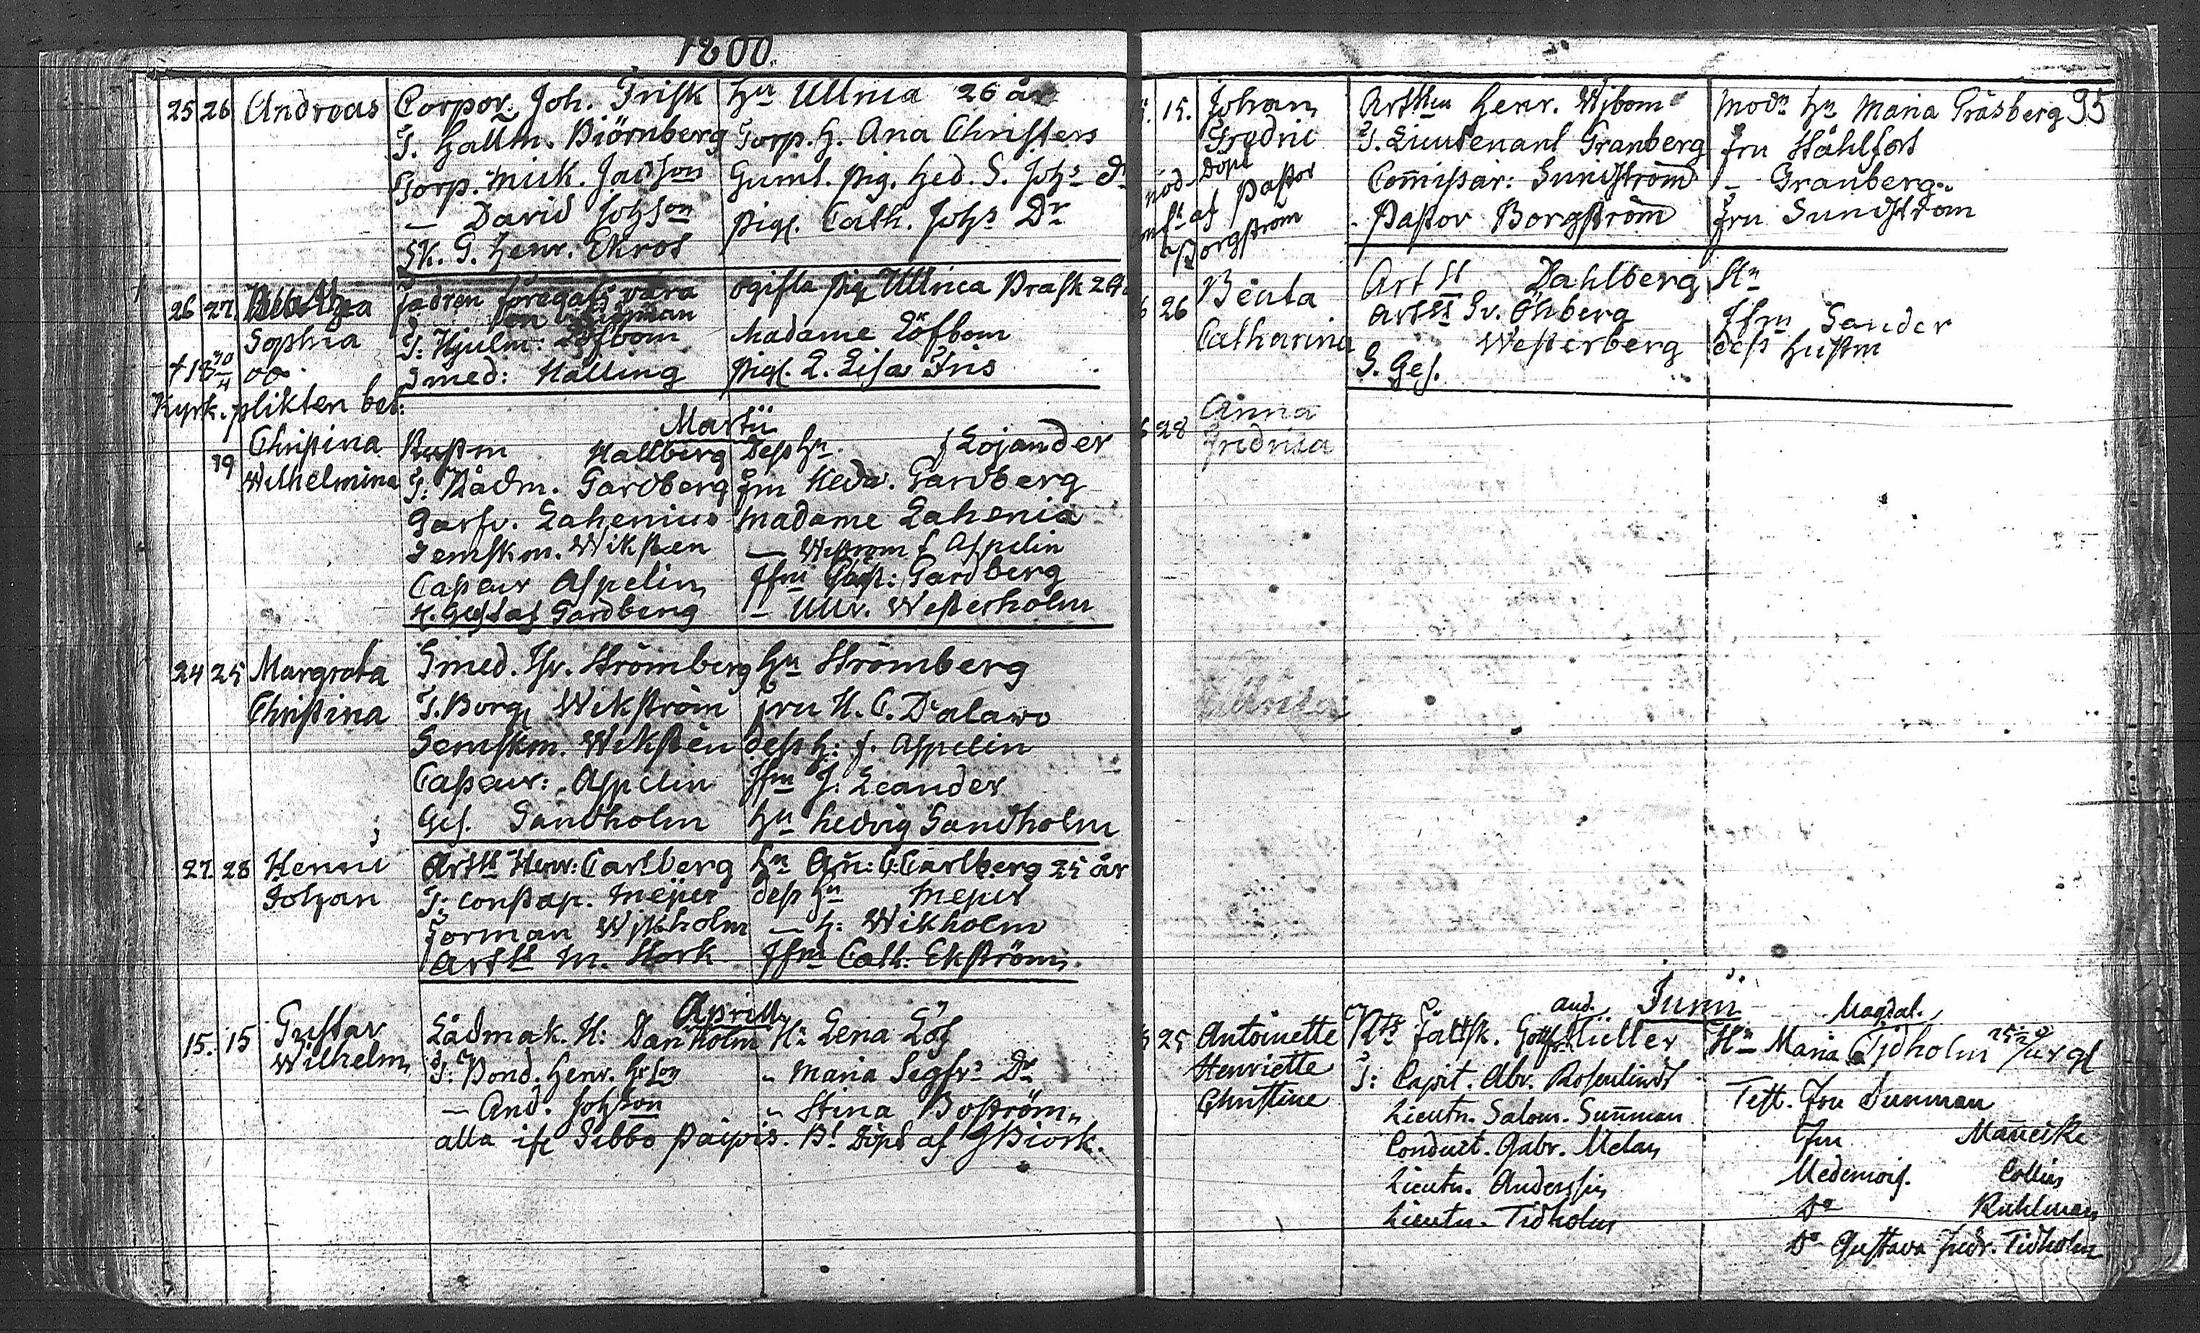 1800.
25 26 Andreas Corpor. Joh. Frisk Hu Ullrica 26 år
T. Hallm. Biörnberg Corp. H. Ana Christers
Corp. Mick. Jacson Guml. pig. Hed. S. Johs Dr
— David Johson pigs. Cath. Johs Dr
Sk. G. Henr. Ekros
26 27. Sophia fadren föregafs vara ogifta pig Ullrica Prask
T: Hjulm: Löfbom Madame Löfbom
Smed: Hälling pigs. L. Lisa Iris
†18 30/4 00.
Kyrk.plikten bet:
Martii
19 Christina Wilhelmina Rustm Hallberg Dess Hu f Lojander
T: Rådm. Gardberg fru Heda. Gardberg
Garfv. Lahenius Madame Lahenia
Temskm. Wiksten — Wistrom f Aspelin
Casseur Aspelin Jfru Christ: Gardberg
H. Gustaf Gardberg — Ullr. Westerholm
24 25 Margreta Christina Smed. Strömberg Hu Strömberg
T. Borg. Wikström fru H. C. Dalawo
Temskm. Wikstén dess H: f. Aspelin
Casseur: Aspelin Jfru J: Leander
Ges. Sandholm Hu Hedvig Sandholm
27. 28 Henric Johan Artlt Henr: Carlberg Hu Añ: C: Carlberg 25 år
T: Constap. Meijer dess Hu Meijer
Forman Wikholm — H: Wikholm
Artlt M. Stork Jfru Cath. Ekström
Aprill
15. 15 Gustav Wilhelm Lådmak. H: Danholm Hu Lena Löf
T: Bond. Henr. Hrson " Maria Segfrs Dr
— And. Johson " Stina Boström
alla ifr Sibbo Bt Döpt af GBiork.
95
15. Johan Fredric Henr. Wibom Modn Hu Maria Gräsberg
T. Lieutenant Granberg fru Ståhlfot
Com̃issar: Sundström — Granberg
Pastor Borgström fru Sundström
Döpt af Pastor Borgström
26 Beata Catharina Artlt Dahlberg Hn
Artlt Gr. Öhberg Jfru Sander
Westerberg dess Hustru
G. Ges.
28 Anna Fridrica
Ullrica
Junii
25 Antoinette Henriette Christine Rts Fältsk. And. Gottfr Müller Hn Maria Magdal. Tidholm
T: Capit. Abr. Rosenlindt Test. Fru Sunman
Lieutn. Salom. Sunman Fru Mañeike
Conduct. Gabr. Melan Medemois. Collin
Lieutn. Anderssin Do Ruhlman
Lieutn. Tidholm Do Gustava Fredr. Tidholm